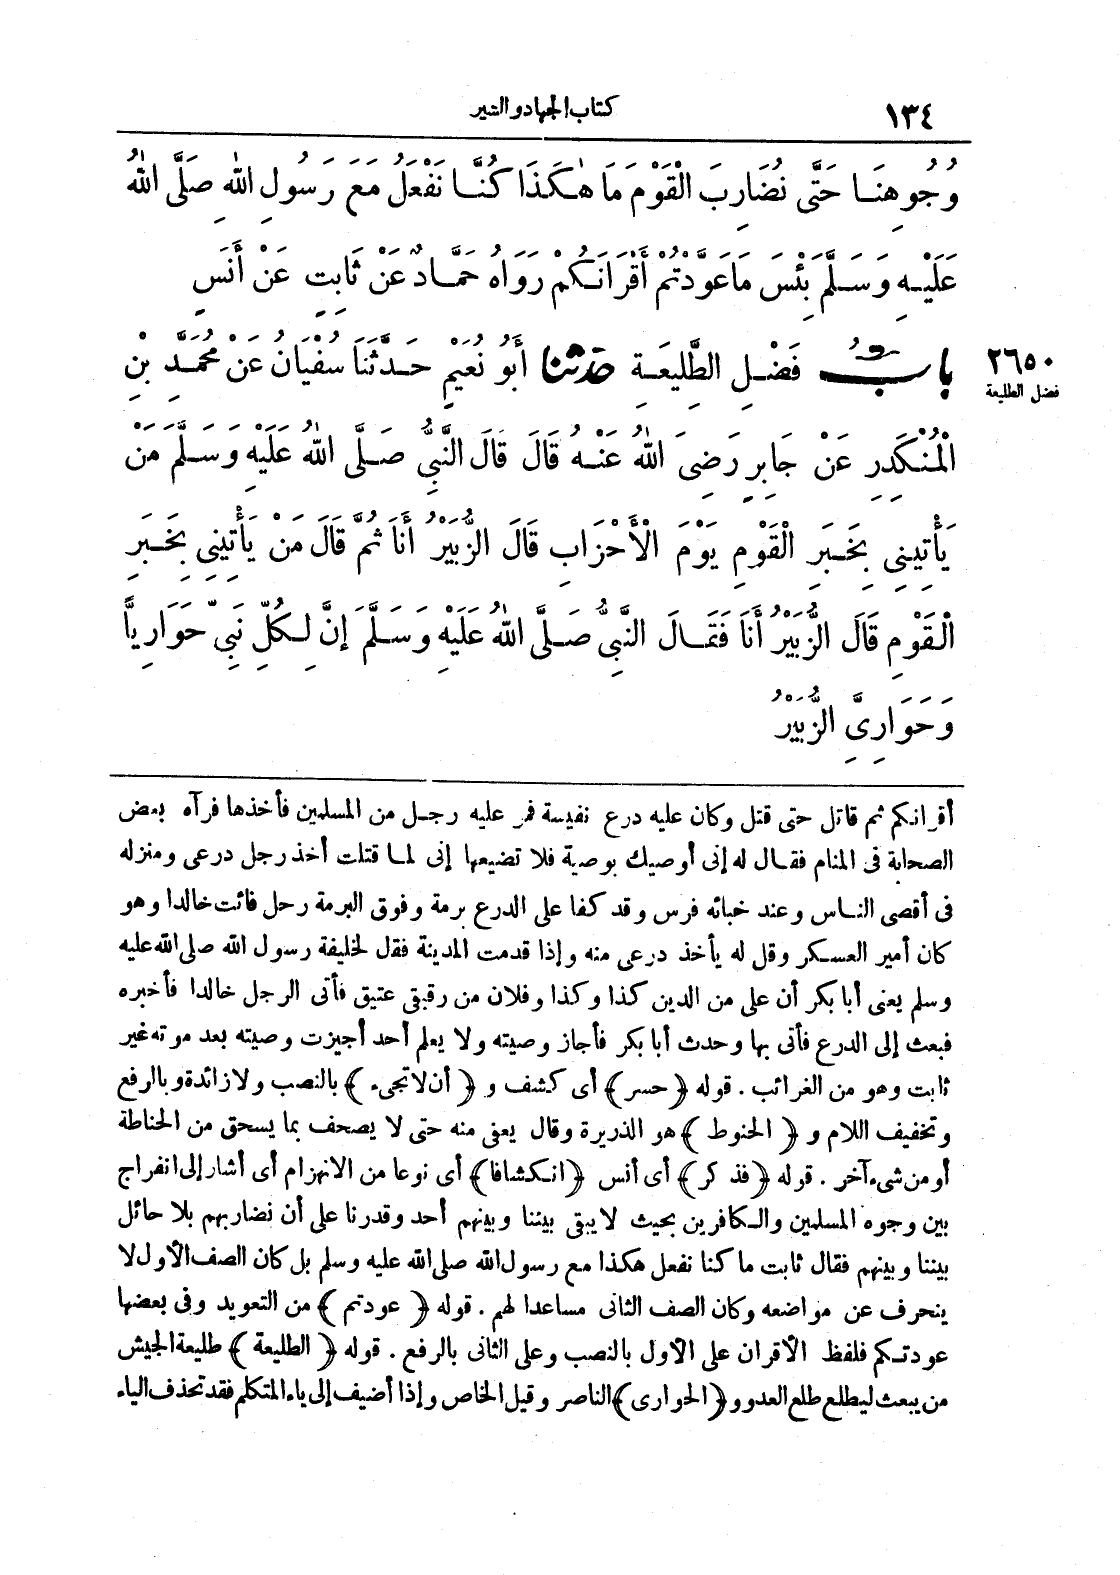 ١٣٤ كتاب الجهاد والسير
وُجُوهِنَا حَتَّى نُضَارِبَ الْقَوْمَ مَا هٰكَذَا كُنَّا نَفْعَلُ مَعَ رَسُولِ اللهِ صَلَّى اللهُ
عَلَيْهِ وَسَلَّمَ بِئْسَ مَا عَوَّدْتُمْ أَقْرَانَكُمْ رَوَاهُ حَمَّادٌ عَنْ ثَابِتٍ عَنْ أَنَسٍ
بَابُ فَضْلِ الطَّلِيعَةِ حَدَّثَنَا أَبُو نُعَيْمٍ حَدَّثَنَا سُفْيَانُ عَنْ مُحَمَّدِ بْنِ
٢٦٥٠
فضل الطليعة
الْمُنْكَدِرِ عَنْ جَابِرٍ رَضِىَ اللهُ عَنْهُ قَالَ قَالَ النَّبِىُّ صَلَّى اللهُ عَلَيْهِ وَسَلَّمَ مَنْ
يَأْتِينِى بِخَبَرِ الْقَوْمِ يَوْمَ الْأَحْزَابِ قَالَ الزُّبَيْرُ أَنَا ثُمَّ قَالَ مَنْ يَأْتِينِى بِخَبَرِ
الْقَوْمِ قَالَ الزُّبَيْرُ أَنَا فَقَالَ النَّبِىُّ صَلَّى اللهُ عَلَيْهِ وَسَلَّمَ إِنَّ لِكُلِّ نَبِىٍّ حَوَارِيًّا
وَحَوَارِىَّ الزُّبَيْرُ
أقرانكم ثم قاتل حتى قتل وكان عليه درع نفيسة فمر عليه رجل من المسلمين فأخذها فرآه بعض
الصحابة فى المنام فقال له إنى أوصيك بوصية فلا تضيعها إنى لما قتلت أخذ رجل درعى ومنزله
فى أقصى الناس وعند خبائه فرس وقد كفا على الدرع برمة وفوق البرمة رحل فائت خالدا وهو
كان أمير العسكر وقل له يأخذ درعى منه وإذا قدمت المدينة فقل لخليفة رسول الله صلى الله عليه
وسلم يعنى أبا بكر أن على من الدين كذا وكذا وفلان من رقيقى عتيق فأتى الرجل خالدا فأخبره
فبعث إلى الدرع فأتى بها وحدث أبا بكر فأجاز وصيته ولا يعلم أحد أجيزت وصيته بعد موته غير
ثابت وهو من الغرائب . قوله ﴿حسر﴾ أى كشف و﴿أن لا تجىء﴾ بالنصب ولا زائدة وبالرفع
وتخفيف اللام و﴿الحنوط﴾ هو الذريرة وقال يعنى منه حتى لا يصحف بما يسحق من الحناطة
أو من شىء آخر . قوله ﴿فذكر﴾ أى أنس ﴿انكشافا﴾ أى نوعا من الانهزام أى أشار إلى انفراج
بين وجوه المسلمين والكافرين بحيث لا يبقى بيننا وبينهم أحد وقدرنا على أن نضاربهم بلا حائل
بيننا وبينهم فقال ثابت ما كنا نفعل هكذا مع رسول الله صلى الله عليه وسلم بل كان الصف الأول لا
ينحرف عن مواضعه وكان الصف الثانى مساعدا لهم . قوله ﴿عودتم﴾ من التعويد وفى بعضها
عودتكم فلفظ الأقران على الأول بالنصب وعلى الثانى بالرفع . قوله ﴿الطليعة﴾ طليعة الجيش
من يبعث ليطلع طلع العدو و﴿الحوارى﴾ الناصر وقيل الخاص وإذا أضيف إلى ياء المتكلم فقد تحذف الياء